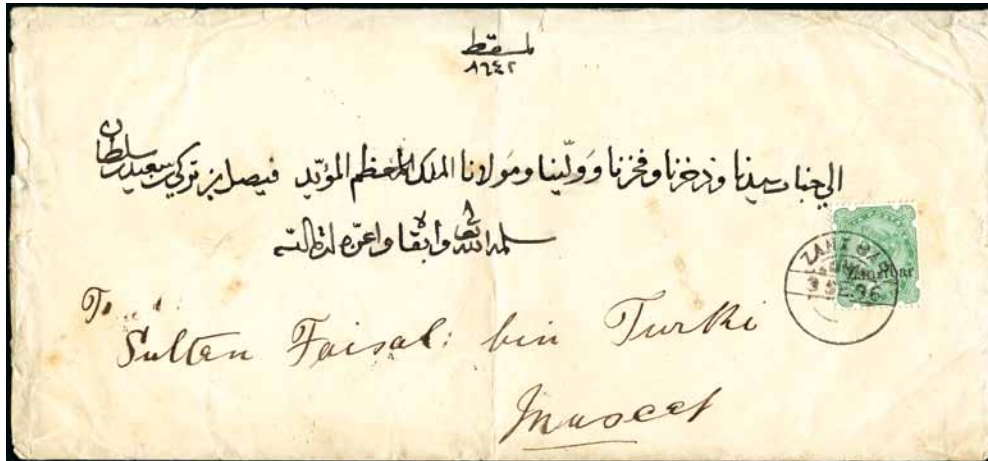 مسقط
٨٦٤٢
الي جناب سيدنا وذخرنا وفخرنا ووليّنا ومولانا الملك المعظم المؤيّد فيصل بن تركي سعيد سلطان
سلمه الله تعالى وابقاه واعزّه
ZANZIBAR
Zanzibar
SE. 96
To
Sultan Faisal: bin Turki
Muscat